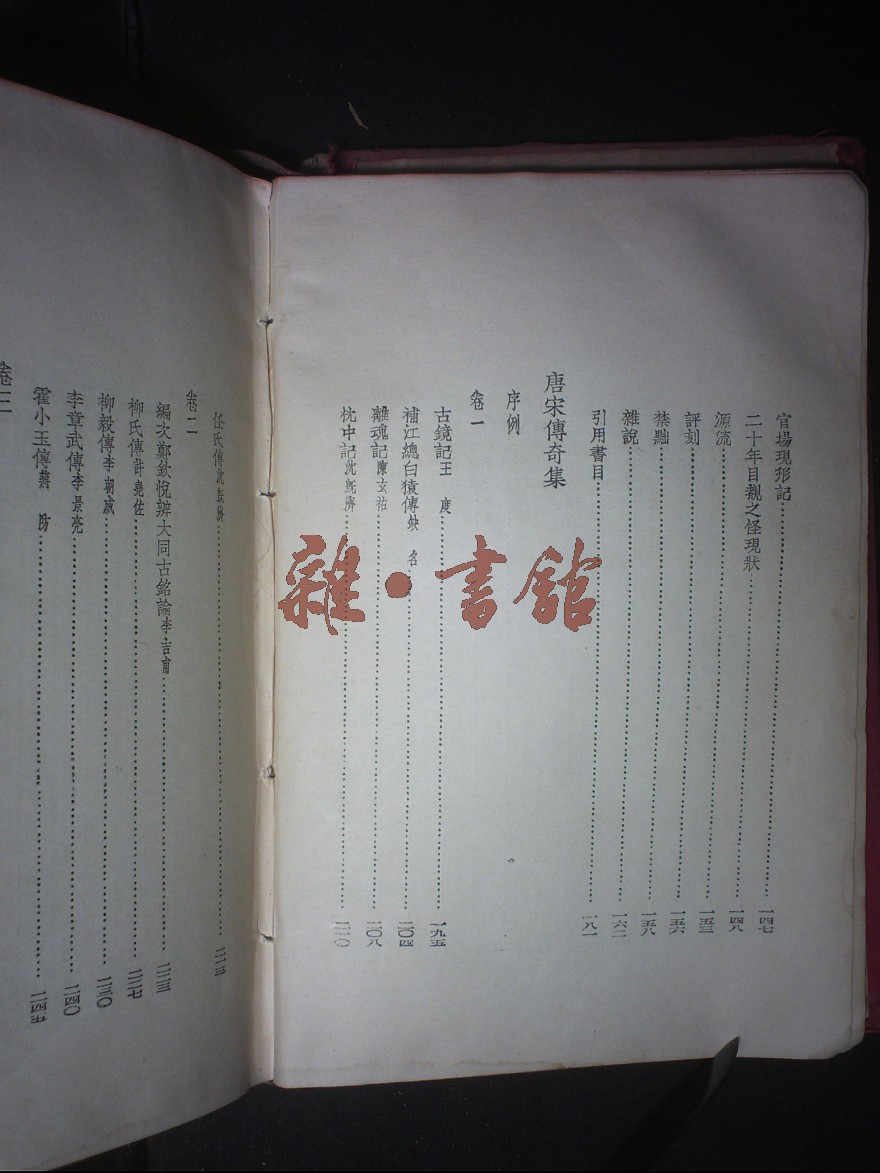 官場現形記……一四七
二十年目覩之怪現狀……一四八
源流……一五三
評刻……一五六
禁黜……一五八
雜說……一六二
引用書目……一八一
唐宋傳奇集
序例
卷一
古鏡記王 度……一九五
補江總白猿傳缺 名……二〇四
離魂記陳玄祐……二〇八
枕中記沈既濟……二一〇
任氏傳沈既濟……二一三
卷二
編次鄭欽悅辨大同古銘論李吉甫……二二三
柳氏傳許堯佐……二二七
柳毅傳李朝威……二三〇
李章武傳李景亮……二四〇
霍小玉傳蔣 防……二四五
卷三
雜·書館